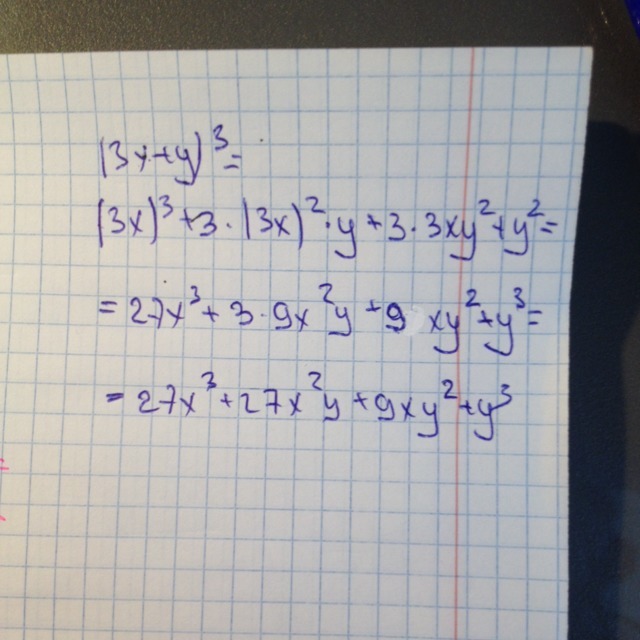 (3x+y)³=
(3x)³+3·(3x)²·y+3·3xy²+y²=
=27x³+3·9x²y+9xy²+y³=
=27x³+27x²y+9xy²+y³